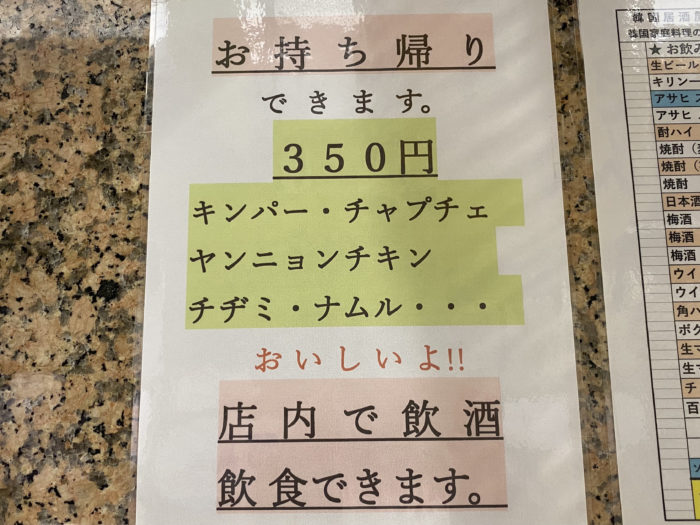 お持ち帰り
できます。
３５０円
キンパー・チャプチェ
ヤンニョンチキン
チヂミ・ナムル・・・
おいしいよ!!
店内で飲酒
飲食できます。
韓国居酒
韓国家庭料理の
★ お飲み
生ビール
キリン一
アサヒ ス
アサヒ ノ
酎ハイ
焼酎（
焼酎（
焼酎
日本酒
梅酒
梅酒
ウイ
ウイ
角ハ
ボク
生マ
生マ
チ
百